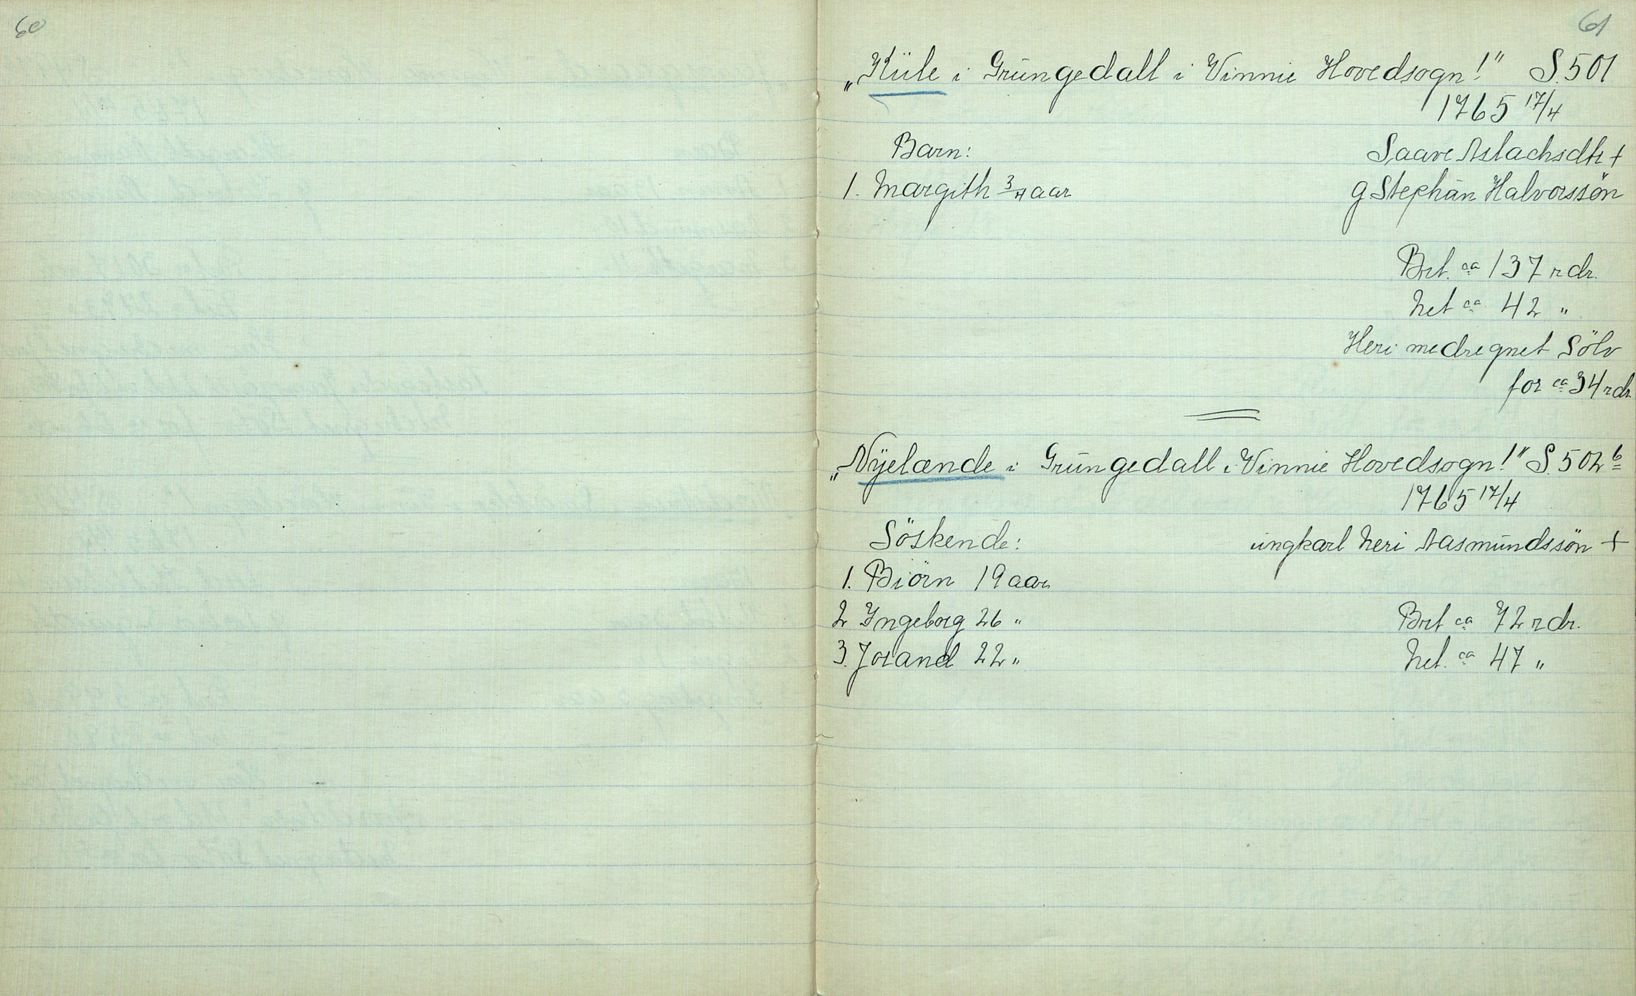 60
61
„Küle i Grungedall i Vinnie Hovedsogn!" S. 501
1765 17/4
Barn: Saave Aslachsdtr +
1. Margith 3/4 aar g Stephan Halvorssön
Brt. ca 137 rdr.
Net ca 42 "
Heri medregnet Sölv
for ca 34 rdr.
„Nyelænde i Grungedall i Vinnie Hovedsogn!" S. 502 b
1765 17/4
Söskende: ungkarl Neri Aasmundssön +
1. Biörn 19 aar
2 Ingeborg 26 " Brt ca 72 rdr.
3. Jorand 22 " Net. ca 47 "